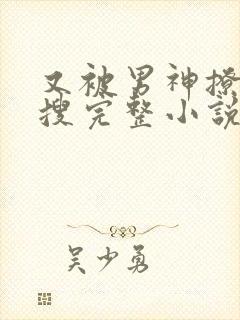 又被男神撩
搜完整小説
吴少勇